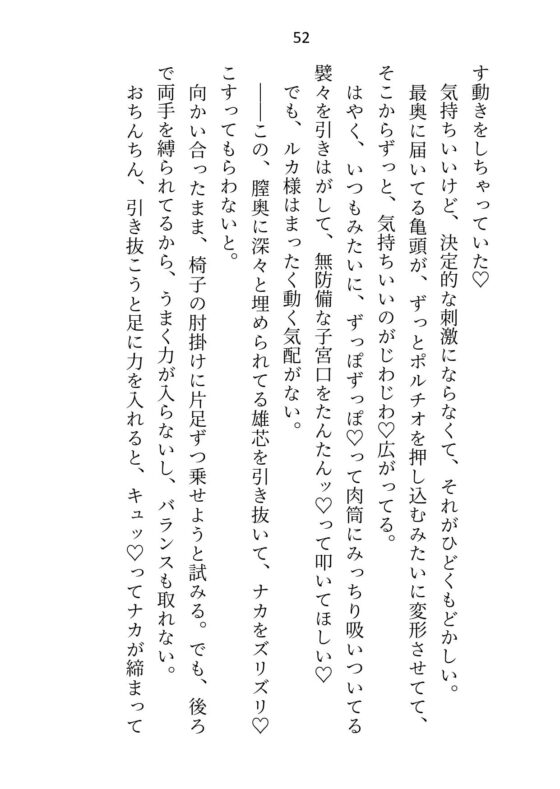 52
す動きをしちゃっていた♡
気持ちいいけど、決定的な刺激にならなくて、それがひどくもどかしい。
最奥に届いてる亀頭が、ずっとポルチオを押し込むみたいに変形させてて、
そこからずっと、気持ちいいのがじわじわ♡広がってる。
はやく、いつもみたいに、ずっぽずっぽ♡って肉筒にみっちり吸いついてる
襞々を引きはがして、無防備な子宮口をたんたんッ♡って叩いてほしい♡
でも、ルカ様はまったく動く気配がない。
――この、膣奥に深々と埋められてる雄芯を引き抜いて、ナカをズリズリ♡
こすってもらわないと。
向かい合ったまま、椅子の肘掛けに片足ずつ乗せようと試みる。でも、後ろ
で両手を縛られてるから、うまく力が入らないし、バランスも取れない。
おちんちん、引き抜こうと足に力を入れると、キュッ♡ってナカが締まって